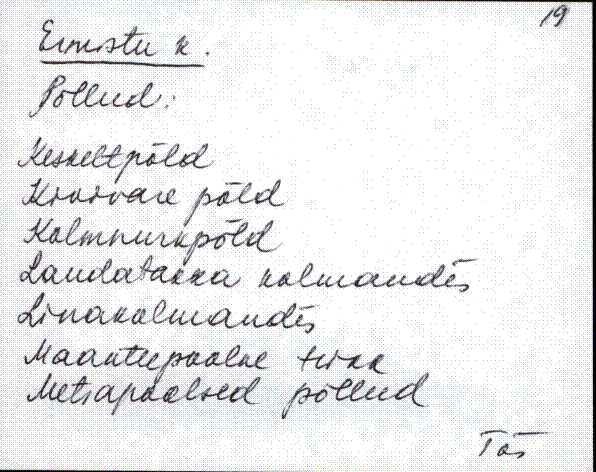 19
Ermistu k.
Põllud:
Keskeltpõld
Kivivare põld
Kolmnurkpõld
Laudatakka kolmandes
Linakolmandes
Maanteepoolne tükk
Metsapoolsed põllud
Tõs